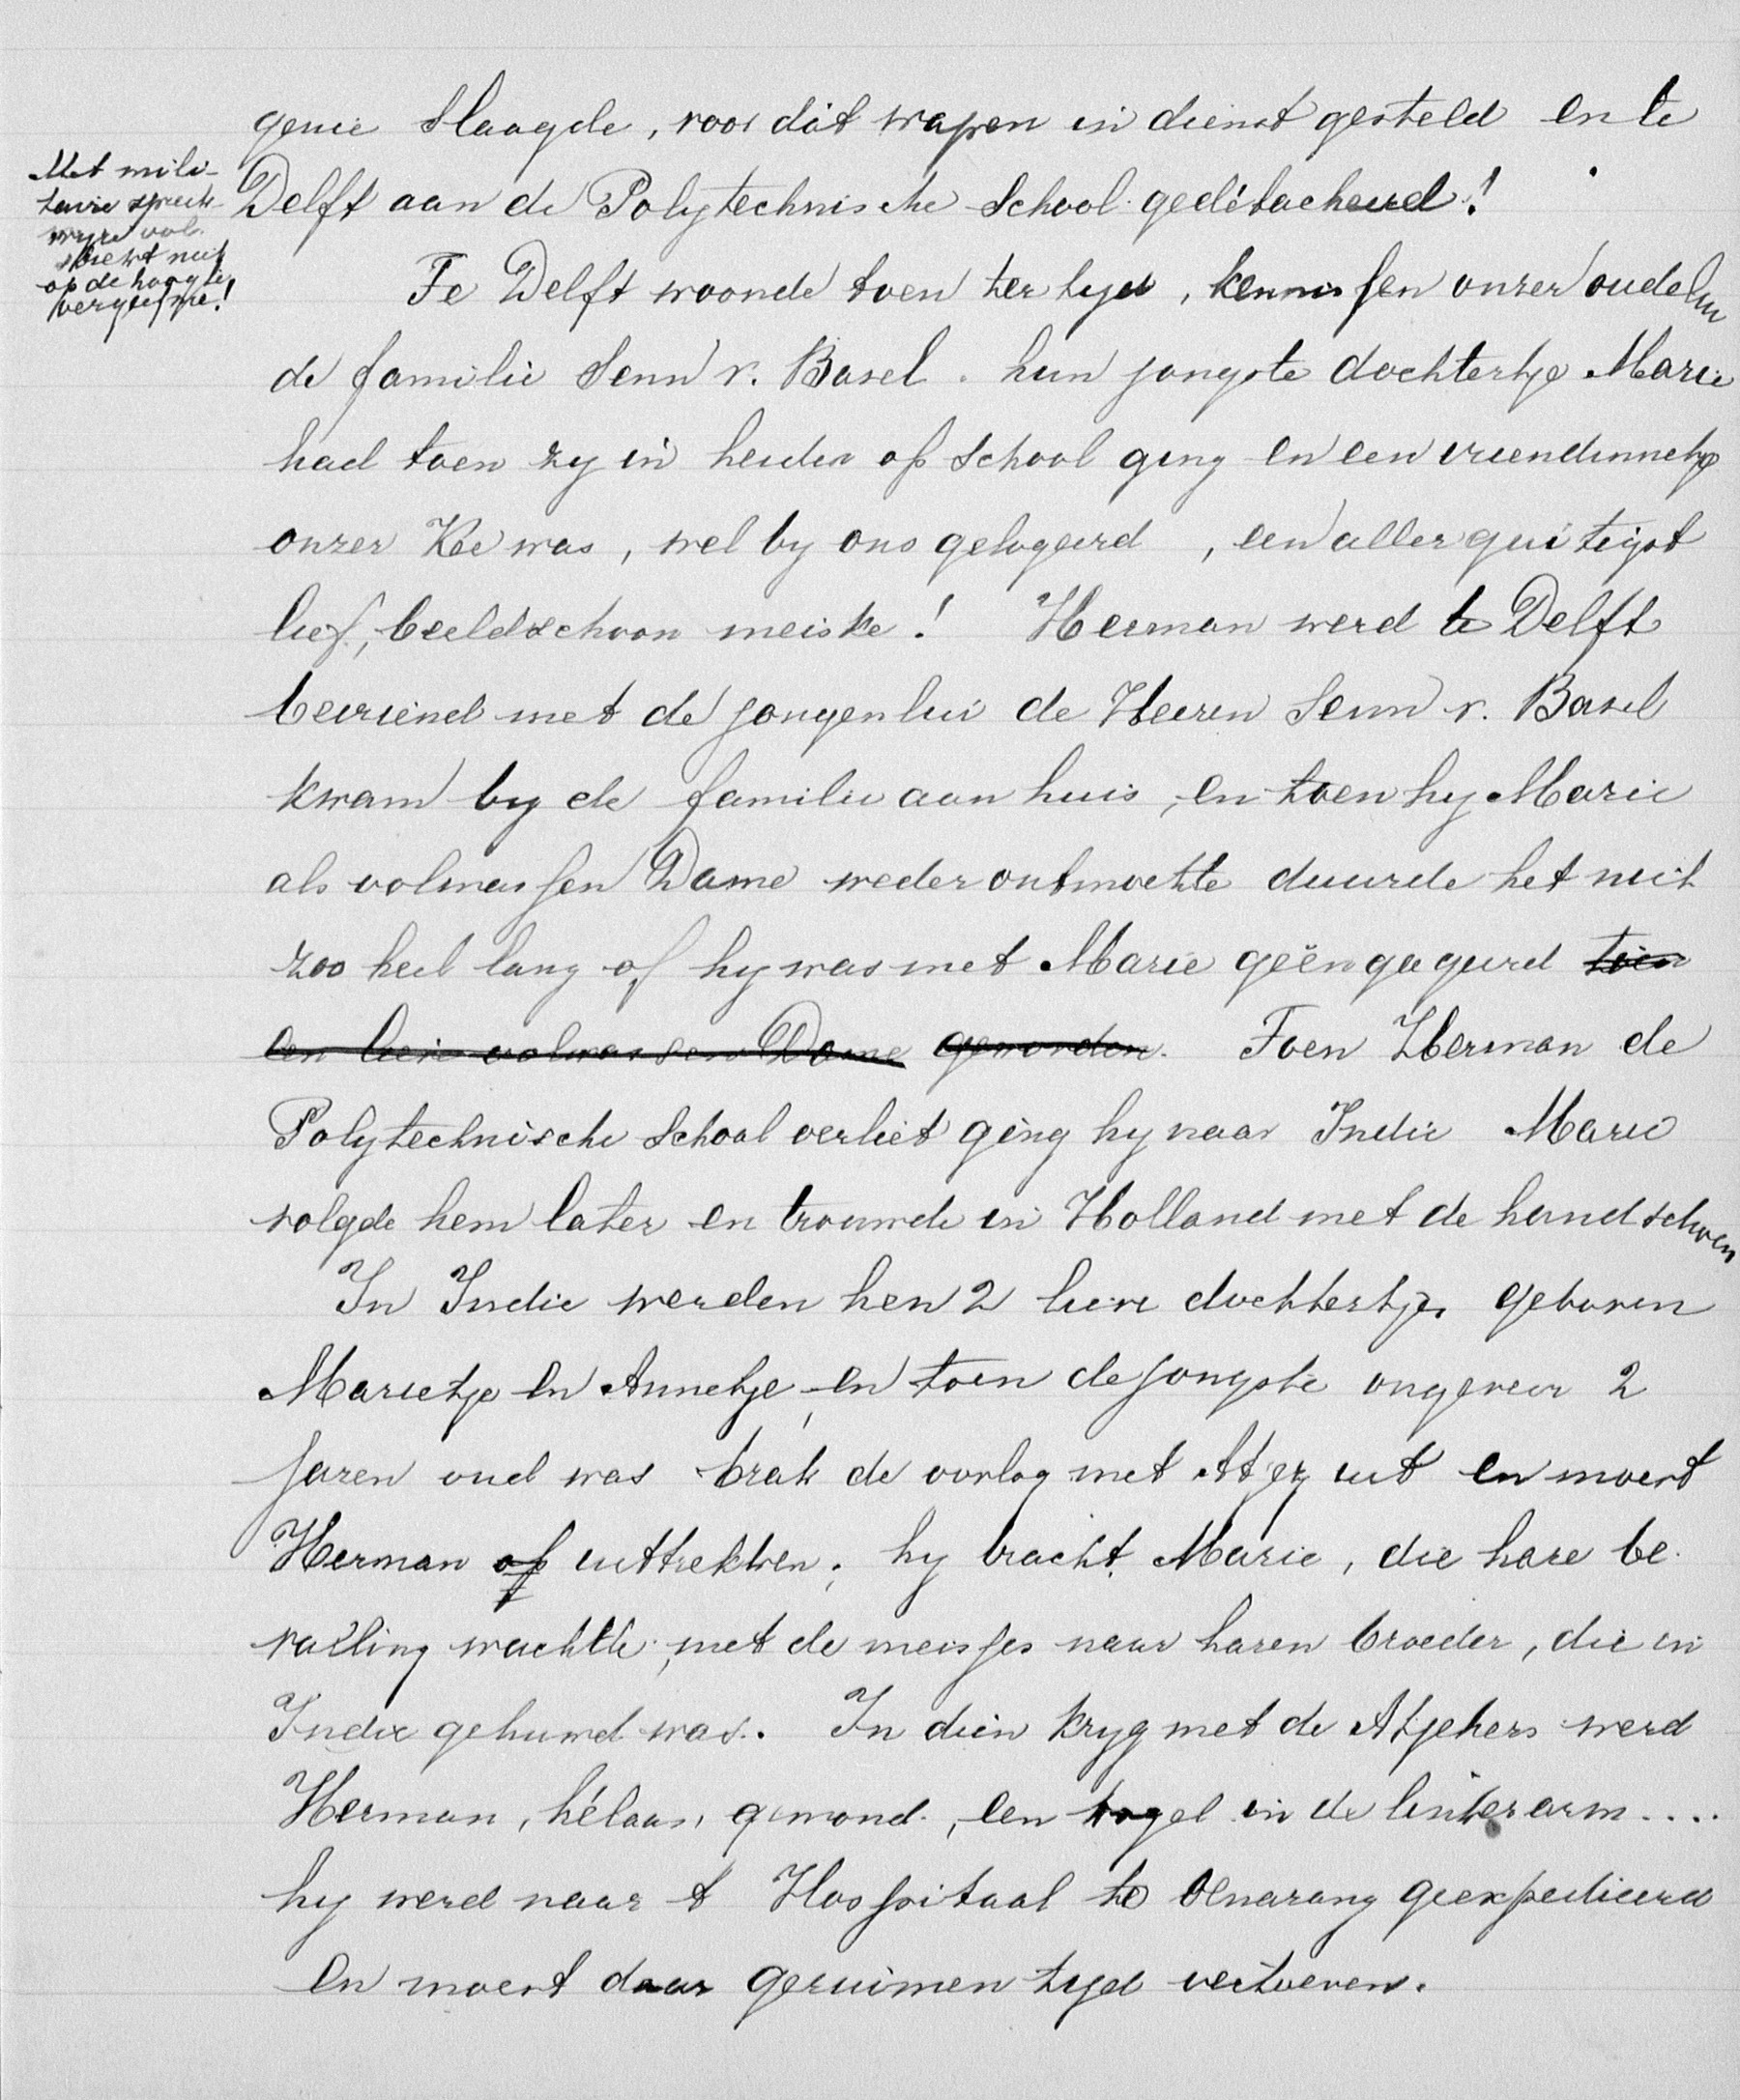 genie slaagde, voor dát wapen in dienst gesteld en te
Met mili-
taire spreek-
wyze vol-
strekt niet
op de hoogte,
vergeef me!
Delft aan de Polytechnische School gedétacheerd!
Te Delft woonde toen ter tyd, kennissen onzer ouderen
de familie Senn v. Basel. hun jongste dochtertje Marie
had toen zy in Leiden op School ging en een vriendinnetje
onzer Kee was, wel by ons gelogeerd, een allerguitigst
lief, beeldschoon meiske! Herman werd te Delft
bevriend met de jongenlui de Heeren Senn v. Basel
kwam by de familie aan huis, en toen hy Marie
als volwassen Dame weder ontmoette duurde het niet
zoo heel lang of hy was met Marie geëngageerd toen
een lieve volwassen Dame geworden. Toen Herman de
Polytechnische School verliet ging hy naar Indie Marie
volgde hem later en trouwde in Holland met de handschoen
In Indie werden hen 2 lieve dochtertjes geboren
Marietje en Annetje, en toen de jongste ongeveer 2
jaren oud was brak de oorlog met Atjeh uit en moest
Herman op uittrekken; hy bracht Marie, die hare be-
valling wachtte, met de meisjes naar haren broeder, die in
Indie gehuwd was. In dien kryg met de Atjehers werd
Herman, hélaas, gewond, een kogel in de linkerarm....
hy werd naar 't Hospitaal te Oenarang geexpedieerd
en moest daar geruimen tyd vertoeven.